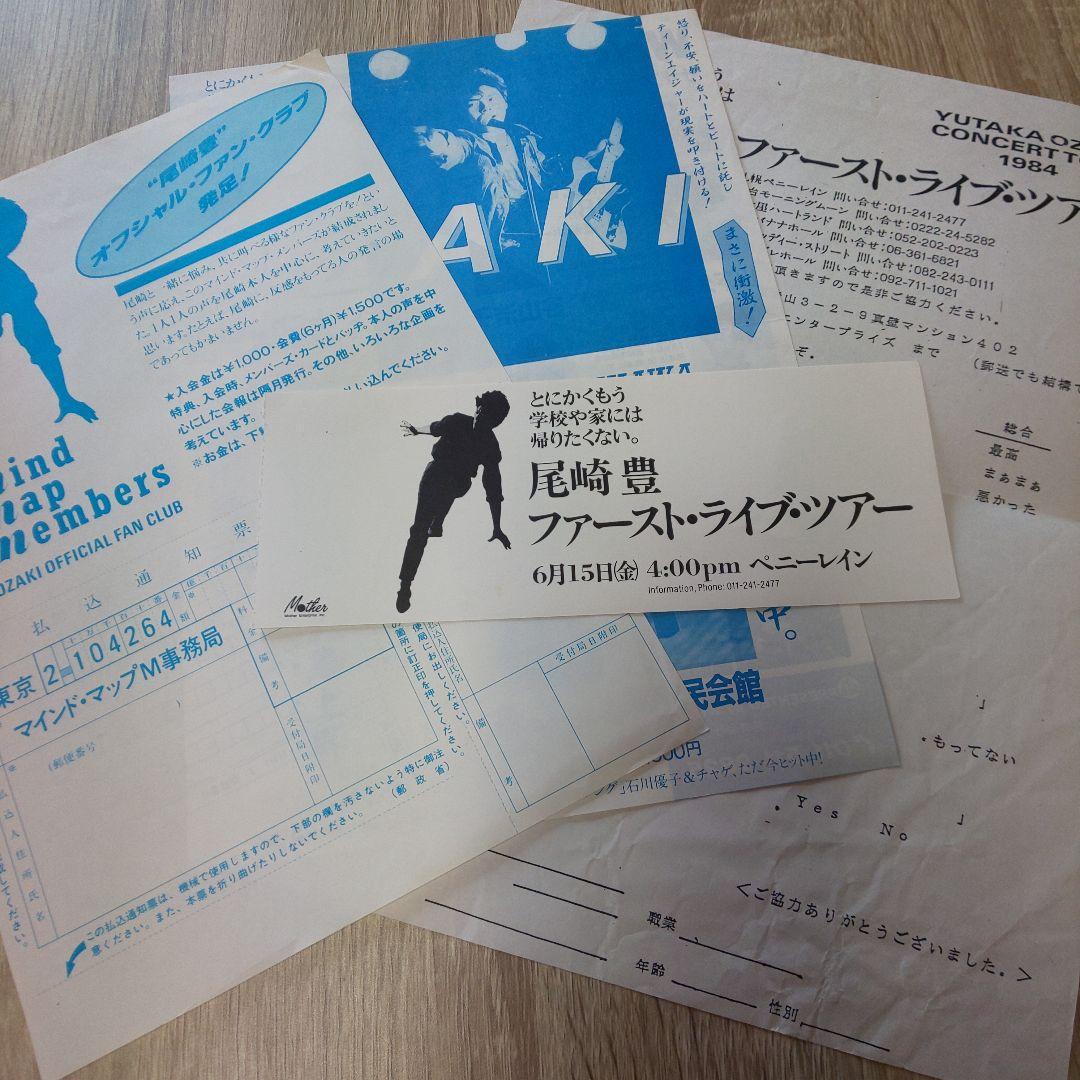 とにかくもう
学校や家には
帰りたくない。
尾崎 豊
ファースト・ライブ・ツアー
6月15日(金) 4:00pm ペニーレイン
information, Phone: 011-241-2477
Mother
とにかく
"尾崎豊"
オフシャル・ファン・クラブ
発足!
尾崎と一緒に悩み、共に叫べる様なファン・クラブを!とい
う声に応え、このマインド・マップ・メンバーズが結成されまし
た。1人1人の声を尾崎本人を中心に、考えていきたいと
思います。たとえば、尾崎に、反感をもってる人の発言の場
であってもかまいません。
★入会金は¥1,000・会費(6ヶ月)¥1,500です。
特典、入会時、メンバーズ・カードとバッヂ。本人の声を中
心にした会報は隔月発行。その他、いろいろな企画を
考えています。
※お金は、下
い込んでください。
mind
map
members
OZAKI OFFICIAL FAN CLUB
払込通知票
東京 2 104264
マインド・マップM事務局
(郵便番号
払込人住所氏名
金額
料金
備考
受付局日附印
この払込通知票は、機械で使用しますので、下部の欄を汚さないよう特に御注
意ください。また、本票を折り曲げたりしないでください。
(郵政省)
便局にお出しください。
の箇所に訂正印を押してください。
払込人住所氏名
備考
受付局日附印
怒り、不安、願いをハートとビートに託し
ティーンエイジャーが現実を叩き付ける!
まさに街激!
AKI
中。
民会館
500円
」石川優子&チャゲ、ただ今ヒット中!
YUTAKA OZ
CONCERT T
1984
ファースト・ライブ・ツア
札幌ペニーレイン 問い合せ:011-241-2477
台モーニングムーン 問い合せ:0222-24-5282
ハートランド 問い合せ:052-202-0223
イナナホール 問い合せ:06-361-6821
ッティー・ストリート 問い合せ:082-243-0111
レホール 問い合せ:092-711-1021
頂きますので是非ご協力ください。
山3-2-9真壁マンション402
ンタープライズ まで
(郵送でも結構で
そ。
総合
最高
まぁまぁ
悪かった
」
・もってない
」
・Yes No
<ご協力ありがとうございました。>
職業
年齢
性別